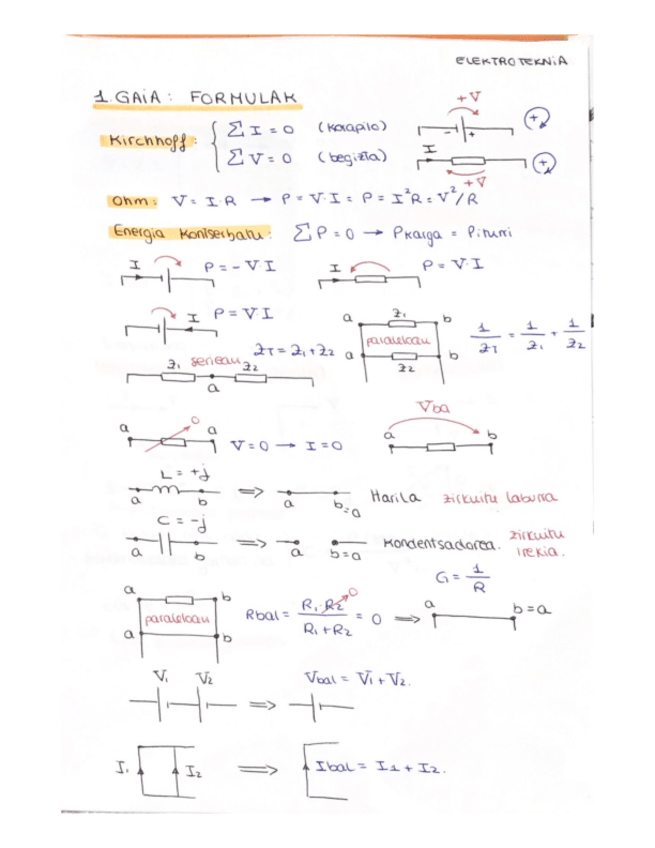 ELEKTROTEKNIA
1.GAIA: FORMULAK
+V
Kirchhoff: Σ I = 0 (korapilo)
- + +
I
Σ V = 0 (begizta)
+
+V
Ohm: V = I·R → P = V·I = P = I²R = V²/R
Energia kontserbatu: Σ P = 0 → Pkarga = Piturri
I P = -V·I I P = V·I
I P = V·I
a Z₁ b
1/ZT = 1/Z₁ + 1/Z₂
paraleloan
a Z₂ b
serieau ZT = Z₁+Z₂
Z₁ Z₂
a
Vba
a 0 a a b
V=0 → I=0
L = +j
a b ⇒ a b=a Harila zirkuitu laburra
C = -j
a b ⇒ a b=a Kondentsadorea. zirkuitu irekia.
G = 1/R
a b
paraleloan Rbal = R₁·R₂/R₁+R₂ = 0 ⇒ a b=a
0
a b
V₁ V₂ Vbal = V₁+V₂.
⇒
I₁ I₂ ⇒ Ibal = I₁ + I₂.